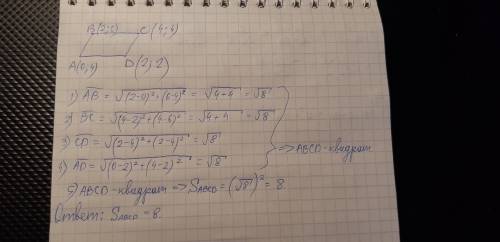 B(2;6) C(4;4)
A(0;4) D(2;2)
1) AB = √((2-0)²+(6-4)²) = √(4+4) = √8
2) BC = √((4-2)²+(4-6)²) = √(4+4) = √8
3) CD = √((2-4)²+(2-4)²) = √8
4) AD = √((0-2)²+(4-2)²) = √8
=> ABCD-квадрат
5) ABCD-квадрат => S_ABCD = (√8)² = 8
Ответ: S_ABCD = 8.